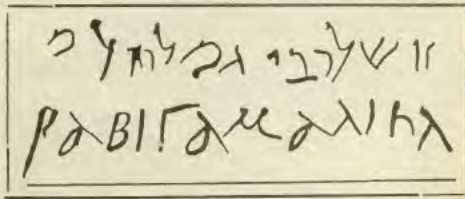 זו שלרבי גמליאל
ΡαΒΙΓαμαλιηλ